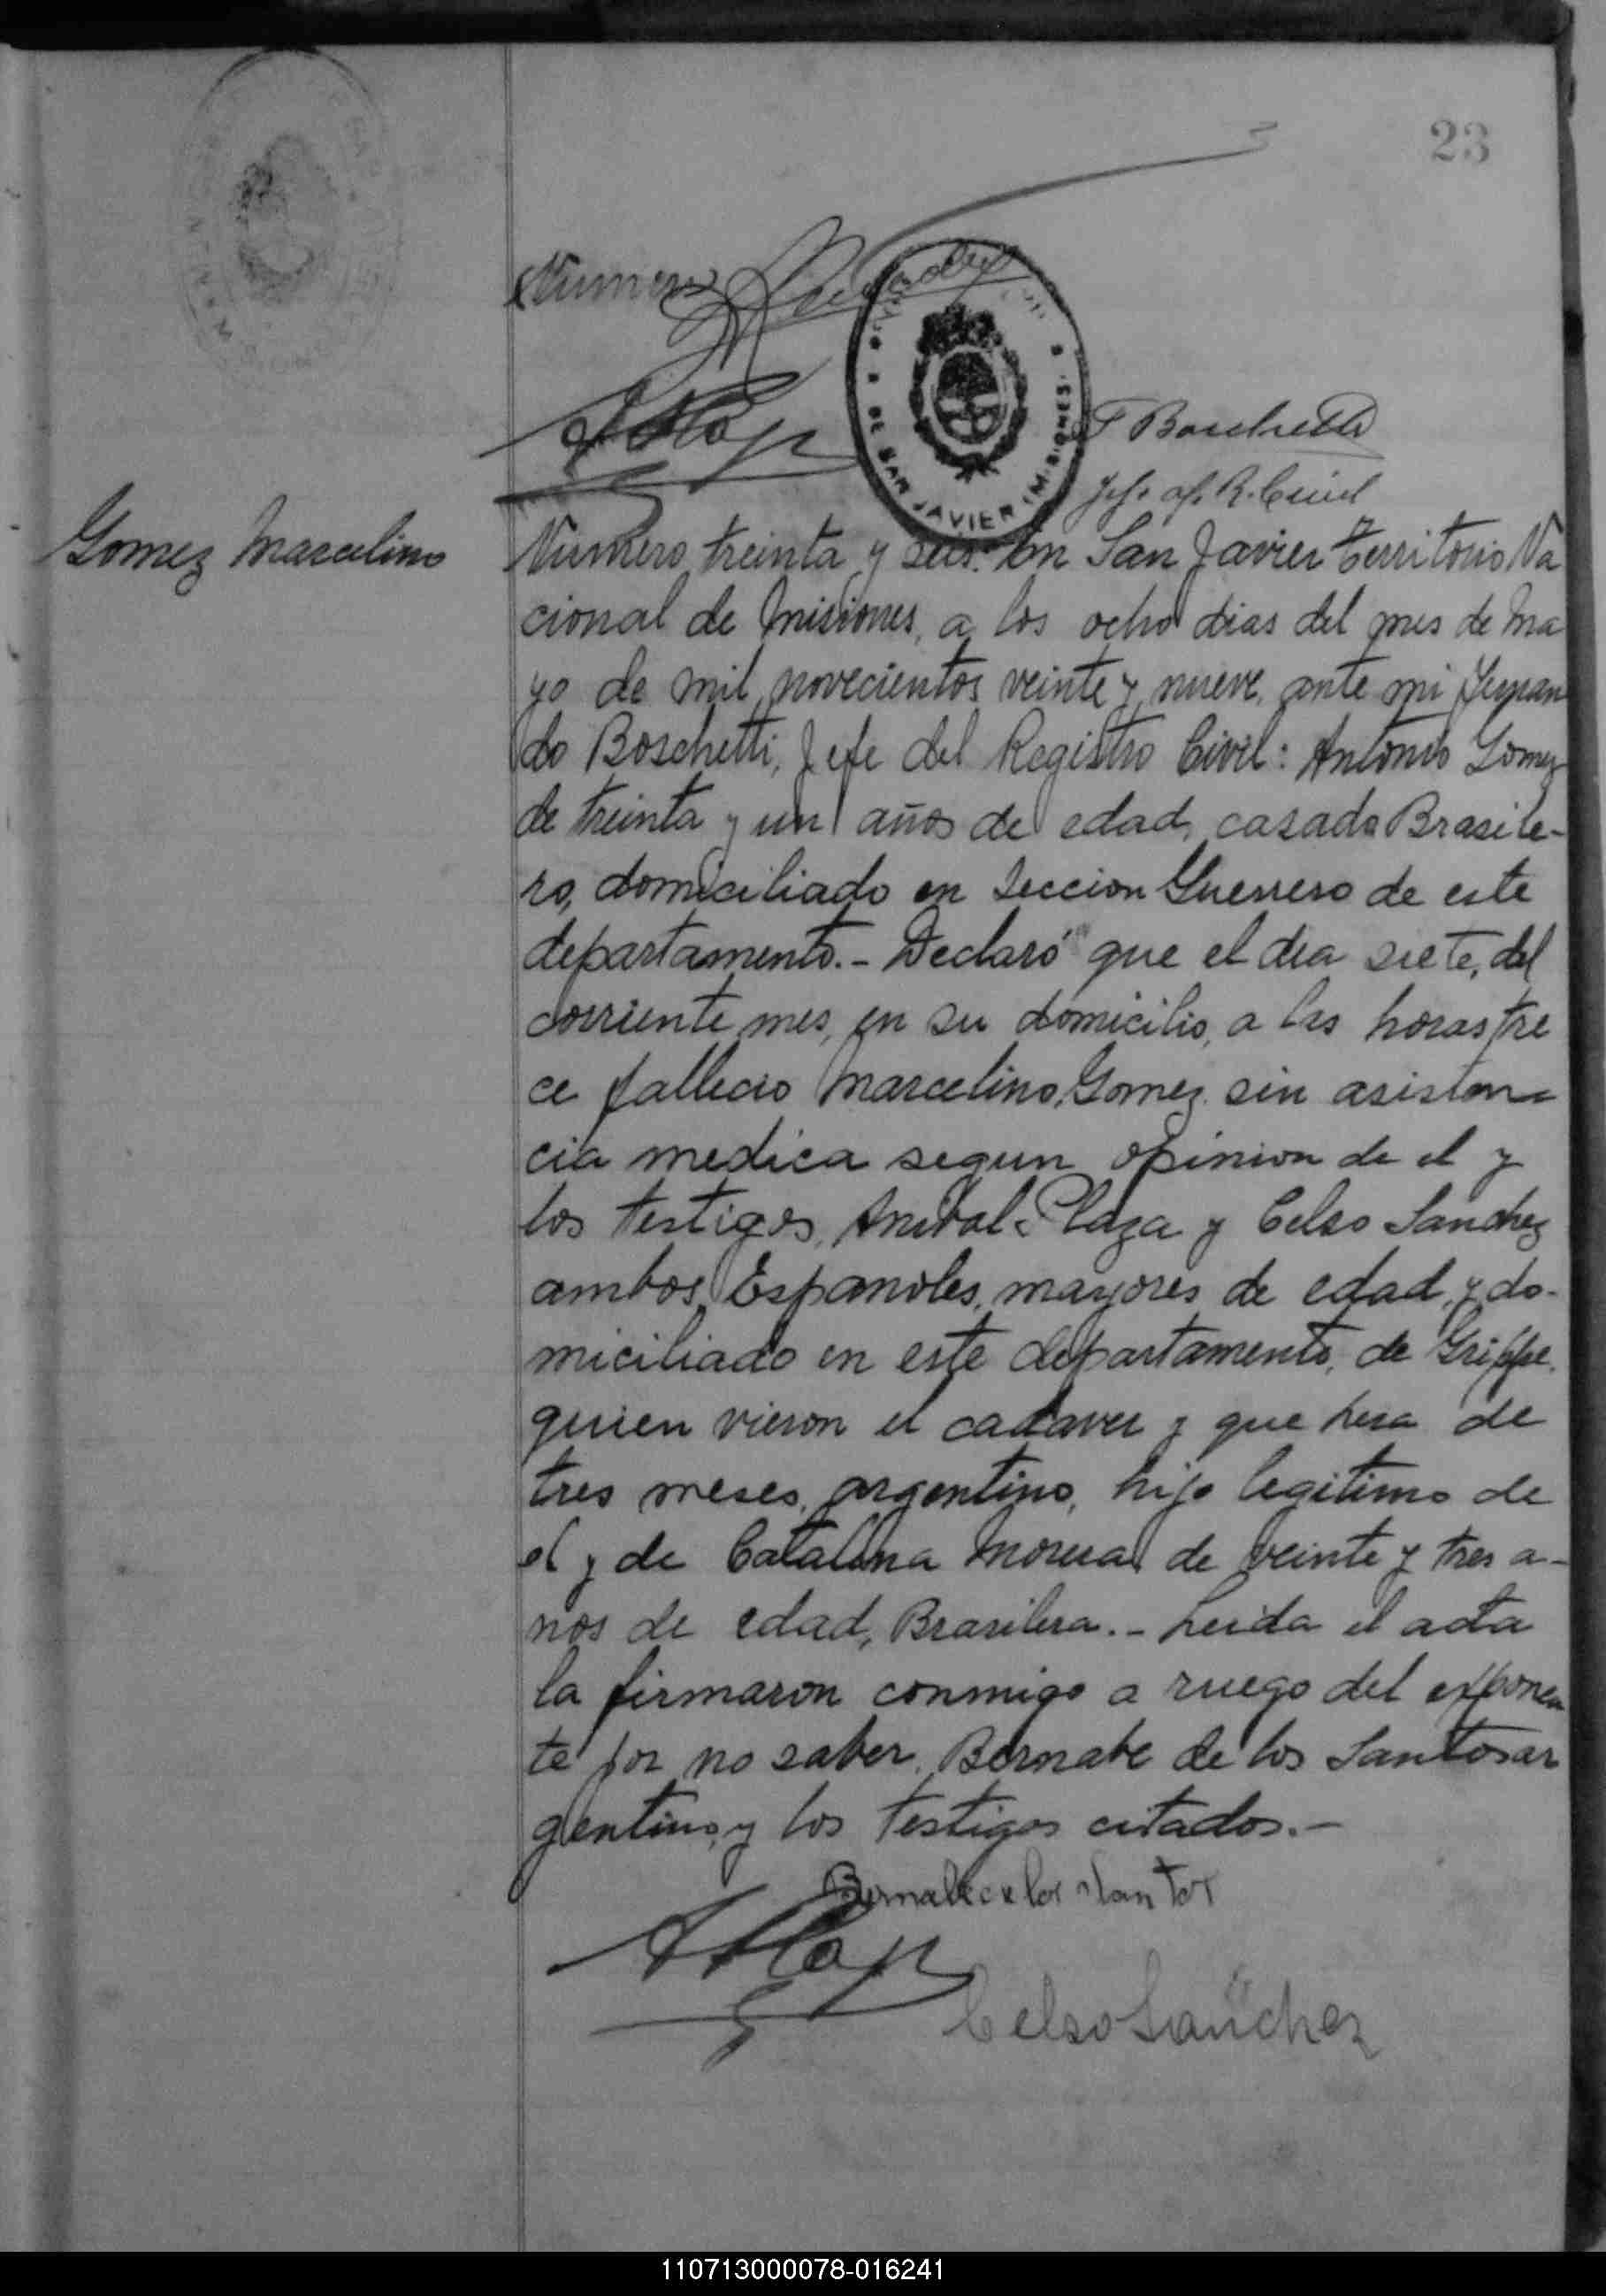 23
Numero
T Boschetti
Jefe of. R. Civil
DE SAN JAVIER (MISIONES)
Gomez Marcelino
Numero treinta y seis. En San Javier Territorio Na
cional de Misiones, a los ocho dias del mes de Ma
yo de mil novecientos veinte y nueve, ante mi Fernan
do Boschetti, Jefe del Registro Civil: Antonio Gomez
de treinta y un años de edad, casado Brasile-
ro, domiciliado en Seccion Guerrero de este
departamento.- Declaró que el dia siete, del
corriente mes, en su domicilio, a las horas tre
ce fallecio Marcelino Gomez sin asisten=
cia medica segun opinion de el y
los testigos, Anibal Plaza y Celso Sanchez
ambos Españoles, mayores de edad, y do-
miciliado en este departamento, de Grippe.
quien vieron el cadaver y que hera de
tres meses, argentino, hijo legitimo de
el y de Catalina Moreira de veinte y tres a-
nos de edad, Brasilera.- Leida el acta
la firmaron conmigo a ruego del exponen
te por no saber, Bernabe de los Santos ar
gentino, y los testigos citados.-
Bernabe de los Santos
Celso Sanchez
110713000078-016241